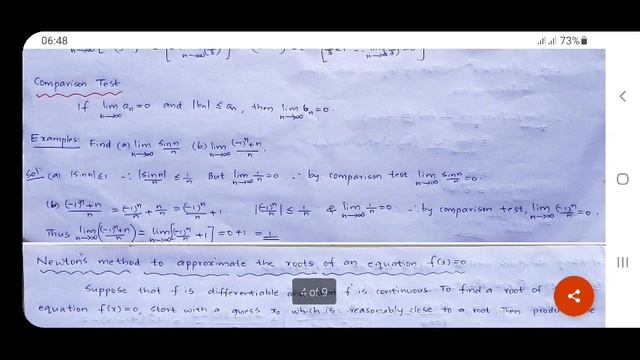 06:48
73%
Comparison Test
If lim n→∞ aₙ=0 and |bₙ| ≤ aₙ, then lim n→∞ bₙ=0.
Examples: Find (a) lim n→∞ sinn/n (b) lim n→∞ ((-1)ⁿ+n)/n.
Sol: (a) |sinn| ≤ 1 ∴ |sinn|/n ≤ 1/n But lim n→∞ 1/n =0 ∴ by comparison test lim n→∞ sinn/n =0.
(b) ((-1)ⁿ+n)/n = (-1)ⁿ/n + n/n = (-1)ⁿ/n + 1. |(-1)ⁿ/n| ≤ 1/n & lim n→∞ 1/n =0. ∴ by comparison test, lim n→∞ (-1)ⁿ/n =0.
Thus lim n→∞ [((-1)ⁿ+n)/n] = lim n→∞ [(-1)ⁿ/n + 1] = 0+1 = 1
Newton's method to approximate the roots of an equation f(x)=0
Suppose that f is differentiable f' is continuous. To find a root of
4 of 9
equation f(x)=0, start with a guess x₀ which is reasonably close to a root. Then